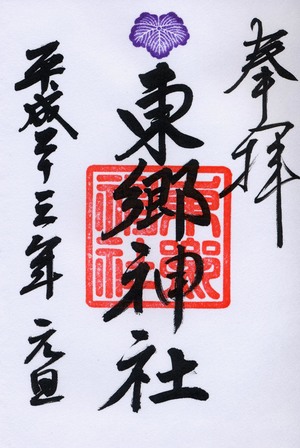 奉拝
東郷神社
東郷神社
平成二十三年 元旦